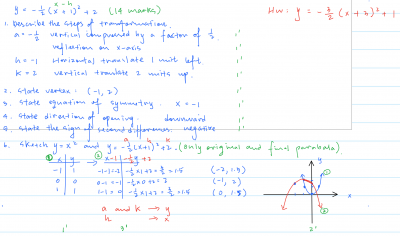 x-h
y = -½(x+1)² + 2 (14 marks)
Hw: y = -3/2 (x+3)² + 1
1. Describe the steps of transformations.
a = -½ vertical compressed by a factor of ½. 1'
reflection on x-axis 1'
h = -1 Horizontal translate 1 unit left. 1'
k = 2 vertical translate 2 units up. 1'
2. State vertex: (-1, 2) 1'
3. State equation of symmetry. x = -1 1'
4. State direction of opening. downward 1'
5. State the sign of second difference. negative 1'
a h k
6. sketch y = x² and y = -½(x+1)² + 2. (only original and final parabola)
① x y ② x-1 -½y+2
-1 1 -1-1=-2 -½×1+2=3/2=1.5 (-2, 1.5)
0 0 0-1=-1 -½×0+2=2 (-1, 2)
1 1 1-1=0 -½×1+2=3/2=1.5 (0, 1.5)
y ①
x
②
a and k → y
h → x
1' 3' 2'